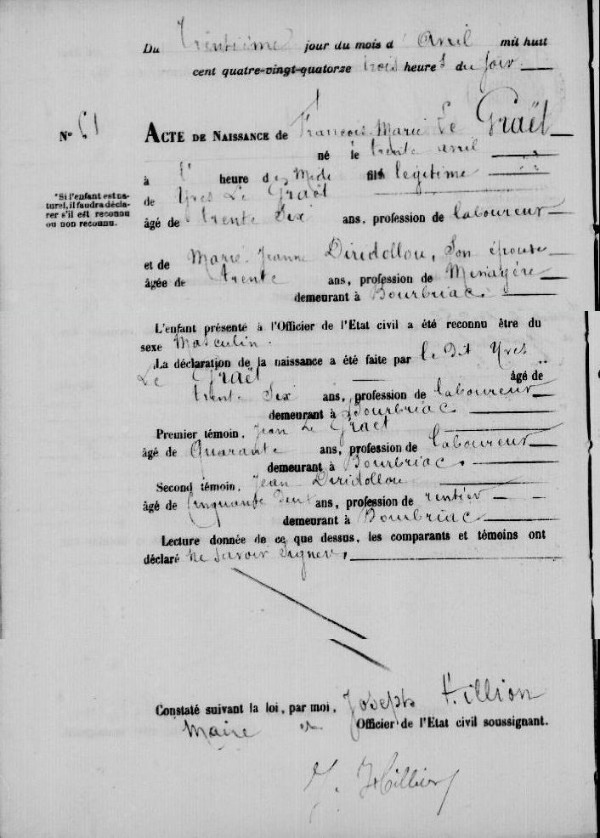 Du trentième jour du mois d'avril mil huit
cent quatre-vingt-quatorze trois heures du soir
N° 51
ACTE DE NAISSANCE de François Marie Le Graët
né le trente avril
à heure de Midi fils légitime
de Yves Le Graët
*Si l'enfant est na-
turel, il faudra décla-
rer s'il est reconnu
ou non reconnu.
âgé de trente six ans, profession de laboureur
et de Marie Jeanne Diridollou, son épouse
âgée de trente ans, profession de Ménagère
demeurant à Bourbriac
L'enfant présenté à l'Officier de l'Etat civil a été reconnu être du
sexe Masculin.
La déclaration de la naissance a été faite par le dit Yves
Le Graët âgé de
trente six ans, profession de laboureur
demeurant à Bourbriac
Premier témoin, Jean Le Graët
âgé de quarante ans, profession de laboureur
demeurant à Bourbriac
Second témoin, Jean Diridollou
âgé de cinquante deux ans, profession de rentier
demeurant à Bourbriac
Lecture donnée de ce que dessus, les comparants et témoins ont
déclaré ne savoir signer,
Constaté suivant la loi, par moi, Joseph Hillion
Maire et Officier de l'Etat civil soussigné.
J. Hillion